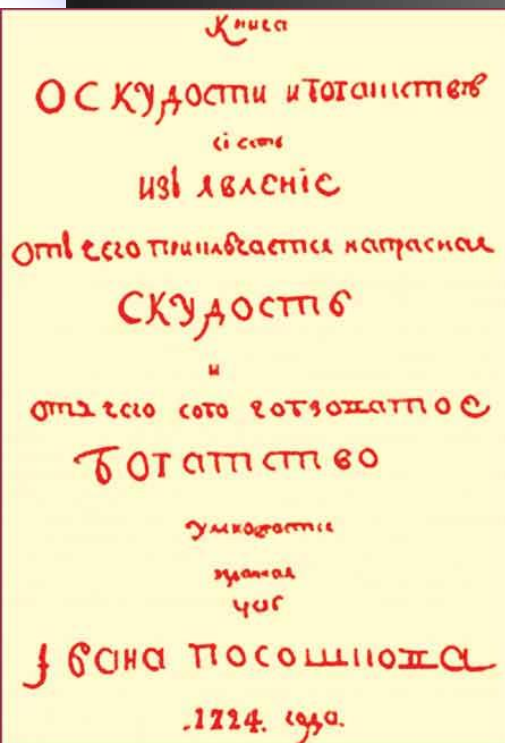 Книга
О СКУДОСТИ и богатствѣ
сіесть
изъявленіе
отъ чего приключается напрасная
СКУДОСТЬ
и
отъ чего
БОГАТСТВО
умножается
Ивана Посошкова
.1724. года.